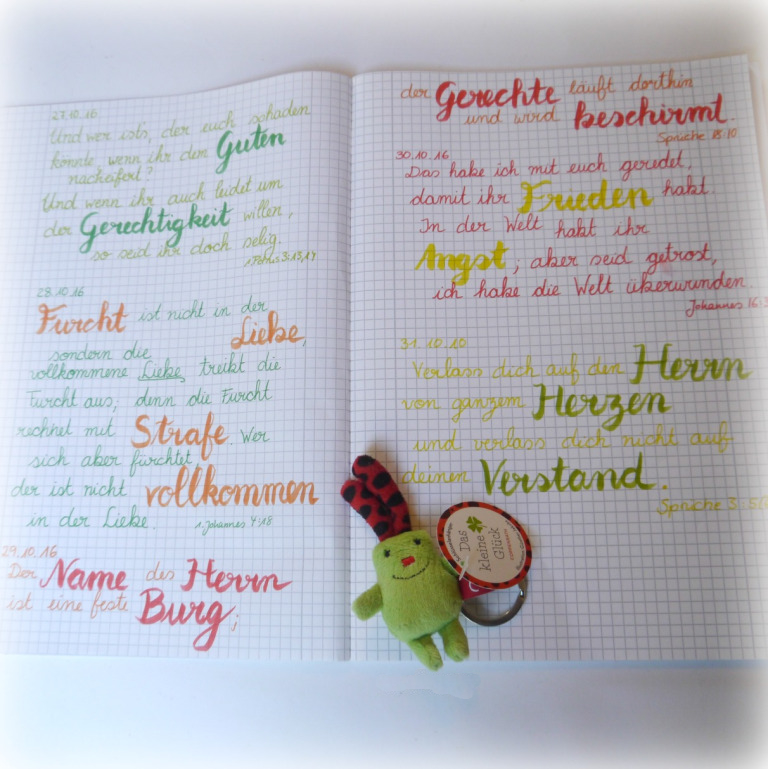 27.10.16
Und wer ist's, der euch schaden
könnte, wenn ihr dem Guten
nacheifert?
Und wenn ihr auch leidet um
der Gerechtigkeit willen,
so seid ihr doch selig.
1.Petrus 3:13,14
28.10.16
Furcht ist nicht in der
Liebe,
sondern die
vollkommene Liebe treibt die
Furcht aus; denn die Furcht
rechnet mit Strafe. Wer
sich aber fürchtet,
der ist nicht vollkommen
in der Liebe. 1.Johannes 4:18
29.10.16
Der Name des Herrn
ist eine feste Burg;
der Gerechte läuft dorthin
und wird beschirmt.
Sprüche 18:10
30.10.16
Das habe ich mit euch geredet,
damit ihr Frieden habt.
In der Welt habt ihr
Angst; aber seid getrost,
ich habe die Welt überwunden.
Johannes 16:3
31.10.10
Verlass dich auf den Herrn
von ganzem Herzen
und verlass dich nicht auf
deinen Verstand.
Sprüche 3:5
Das
kleine
Glück